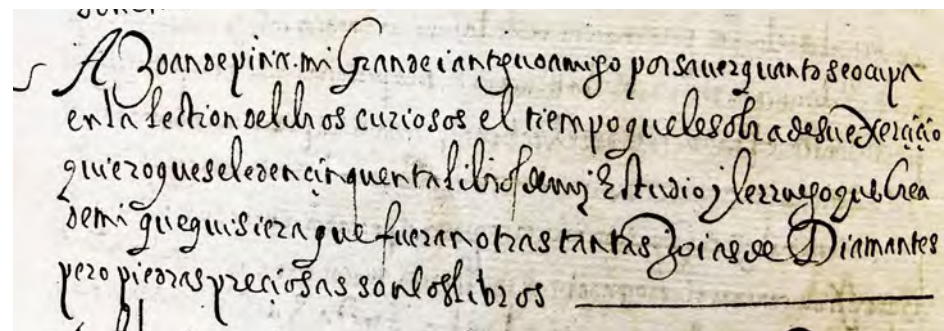 A Joan de pina. mi Grande i antiguo amigo por saver quanto se ocupa
en la lection de libros curiosos el tiempo que le sobra de su exerçiçio
quiero que se le den çinquenta libros de mi Estudio y le rruego que Crea
de mi que quisiera que fueran otras tantas Joias de Diamantes
pero piedras preçiosas son los libros